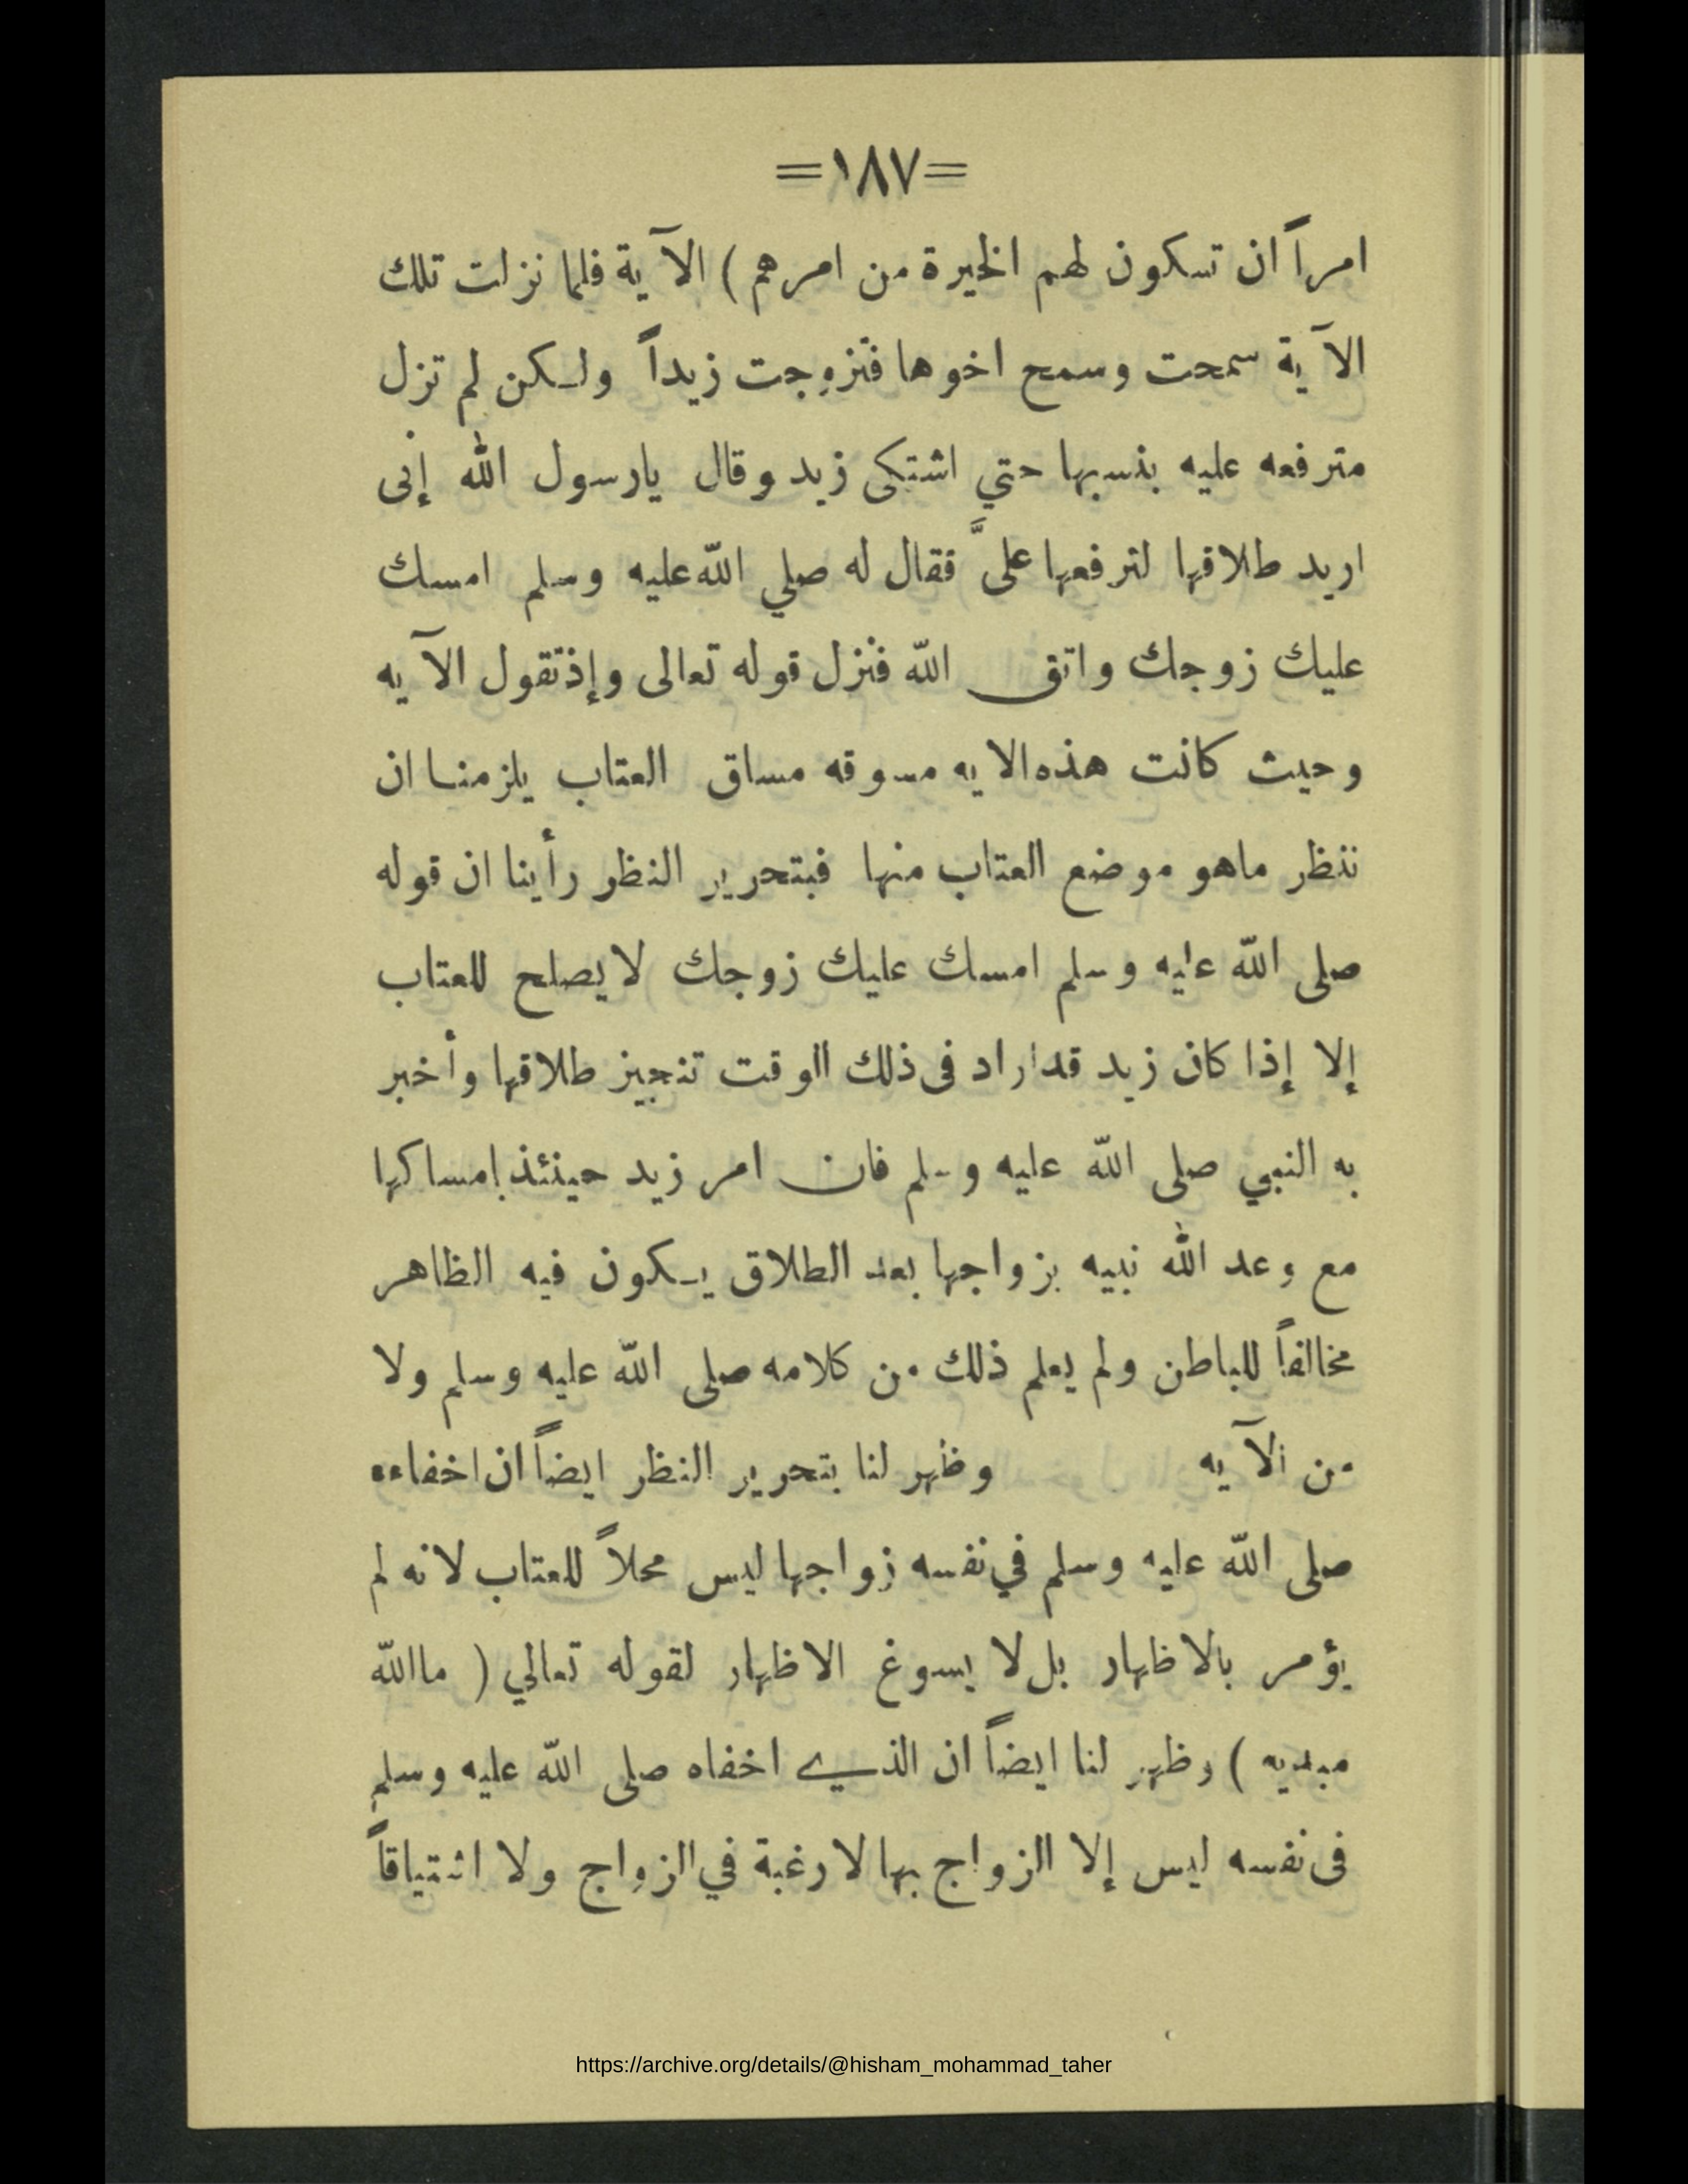 =١٨٧=
امراً ان تسكون لهم الخيرة من امرهم ) الآية فلما نزلت تلك
الآية سمحت وسمح اخوها فتزوجت زيداً ولكن لم تزل
مترفعه عليه بنسبها حتي اشتكى زيد وقال يارسول الله إنى
اريد طلاقها لترفعها علىَّ فقال له صلي الله عليه وسلم امسك
عليك زوجك واتق الله فنزل قوله تعالى وإذتقول الآيه
وحيث كانت هذه الايه مسوقه مساق العتاب يلزمنا ان
ننظر ماهو موضع العتاب منها فبتحرير النظر رأينا ان قوله
صلى الله عليه وسلم امسك عليك زوجك لايصلح للعتاب
إلا إذا كان زيد قداراد فى ذلك الوقت تنجيز طلاقها وأخبر
به النبي صلى الله عليه وسلم فان امر زيد حينئذ بإمساكها
مع وعد الله نبيه بزواجها بعد الطلاق يكون فيه الظاهر
مخالفاً للباطن ولم يعلم ذلك من كلامه صلى الله عليه وسلم ولا
من الآيه وظهر لنا بتحرير النظر ايضاً ان اخفاءه
صلى الله عليه وسلم في نفسه زواجها ليس محلاً للعتاب لانه لم
يؤمر بالاظهار بل لا يسوغ الاظهار لقوله تعالي ( ماالله
مبديه ) وظهر لنا ايضاً ان الذي اخفاه صلى الله عليه وسلم
فى نفسه ليس إلا الزواج بها لا رغبة في الزواج ولا اشتياقاً
https://archive.org/details/@hisham_mohammad_taher